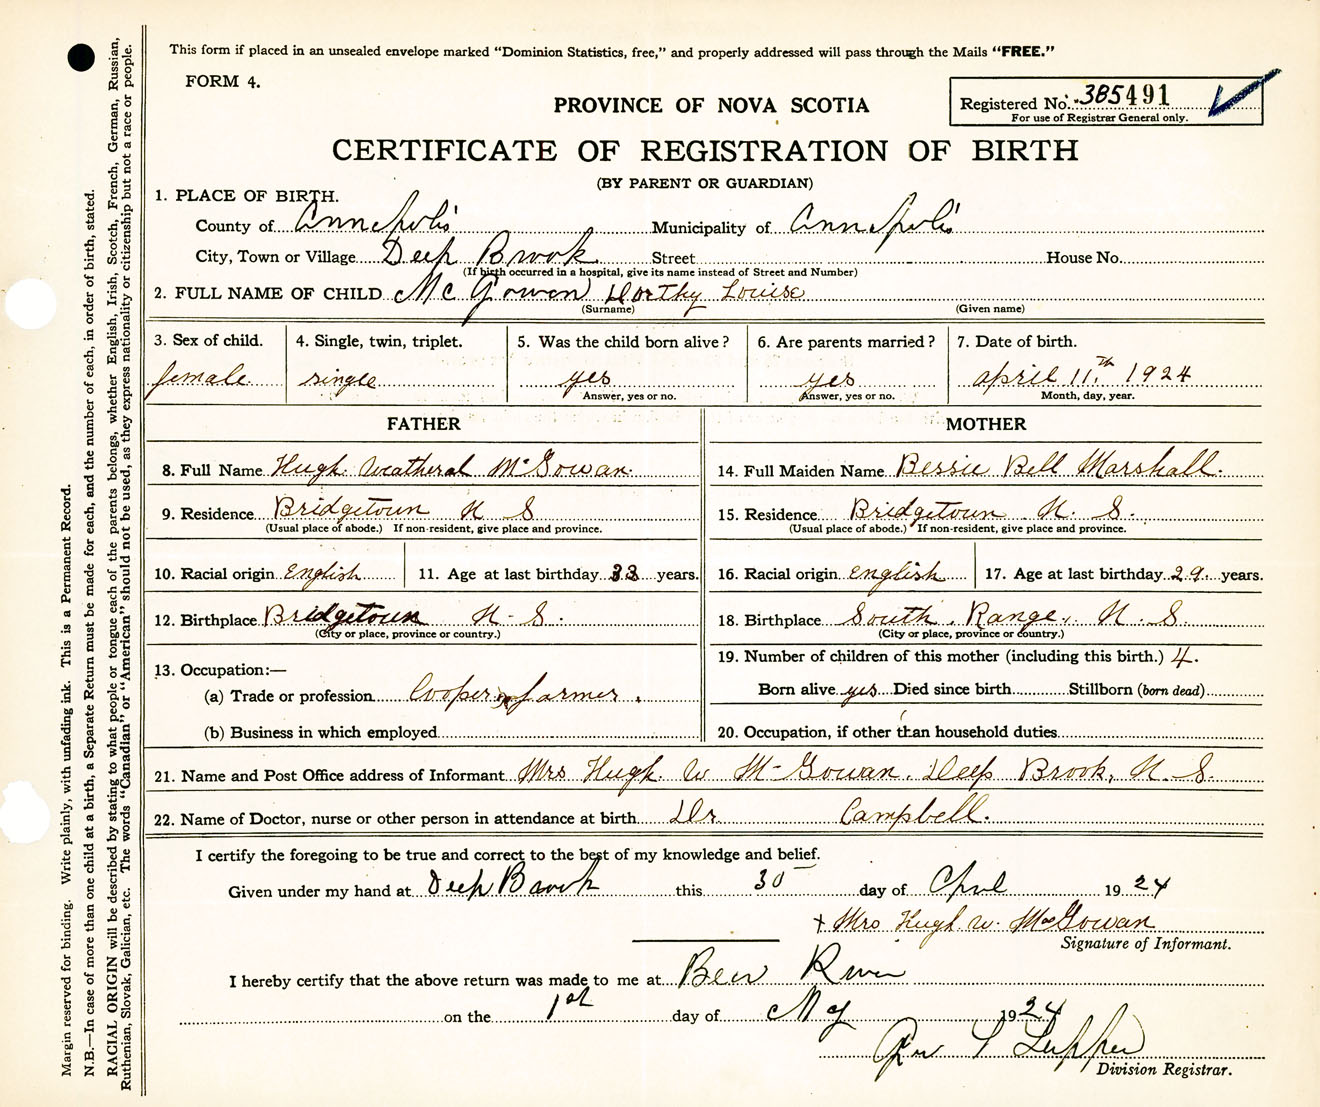 This form if placed in an unsealed envelope marked "Dominion Statistics, free," and properly addressed will pass through the Mails "FREE."
FORM 4.
PROVINCE OF NOVA SCOTIA
Registered No. 385491
For use of Registrar General only.
CERTIFICATE OF REGISTRATION OF BIRTH
(BY PARENT OR GUARDIAN)
1. PLACE OF BIRTH.
County of Annapolis Municipality of Annapolis
City, Town or Village Deep Brook Street House No.
(If birth occurred in a hospital, give its name instead of Street and Number)
2. FULL NAME OF CHILD McGowen Dorthy Louise
(Surname) (Given name)
3. Sex of child. 4. Single, twin, triplet. 5. Was the child born alive? 6. Are parents married? 7. Date of birth.
female single yes yes april 11.th 1924
Answer, yes or no. Answer, yes or no. Month, day, year.
FATHER MOTHER
8. Full Name Hugh Weatheral McGowan. 14. Full Maiden Name Bessie Bell Marshall.
9. Residence Bridgetown N S 15. Residence Bridgetown N. S.
(Usual place of abode.) If non-resident, give place and province. (Usual place of abode.) If non-resident, give place and province.
10. Racial origin English 11. Age at last birthday 33 years. 16. Racial origin English 17. Age at last birthday 29. years.
12. Birthplace Bridgetown N. S. 18. Birthplace South Range, N. S.
(City or place, province or country.) (City or place, province or country.)
13. Occupation:— 19. Number of children of this mother (including this birth.) 4.
(a) Trade or profession Cooper farmer. Born alive yes Died since birth Stillborn (born dead)
(b) Business in which employed 20. Occupation, if other than household duties
21. Name and Post Office address of Informant Mrs Hugh W McGowan. Deep Brook, N. S.
22. Name of Doctor, nurse or other person in attendance at birth Dr. Campbell.
I certify the foregoing to be true and correct to the best of my knowledge and belief.
Given under my hand at Deep Brook this 30 day of April 1924
x Mrs Hugh W. MacGowan
Signature of Informant.
I hereby certify that the above return was made to me at Bear River
on the 1st day of My 1924
Division Registrar.
Margin reserved for binding. Write plainly, with unfading ink. This is a Permanent Record.
N.B.—In case of more than one child at a birth, a Separate Return must be made for each, and the number of each, in order of birth, stated.
RACIAL ORIGIN will be described by stating to what people or tongue each of the parents belongs, whether English, Irish, Scotch, French, German, Russian,
Ruthenian, Slovak, Galician, etc. The words "Canadian" or "American" should not be used, as they express nationality or citizenship but not a race or people.